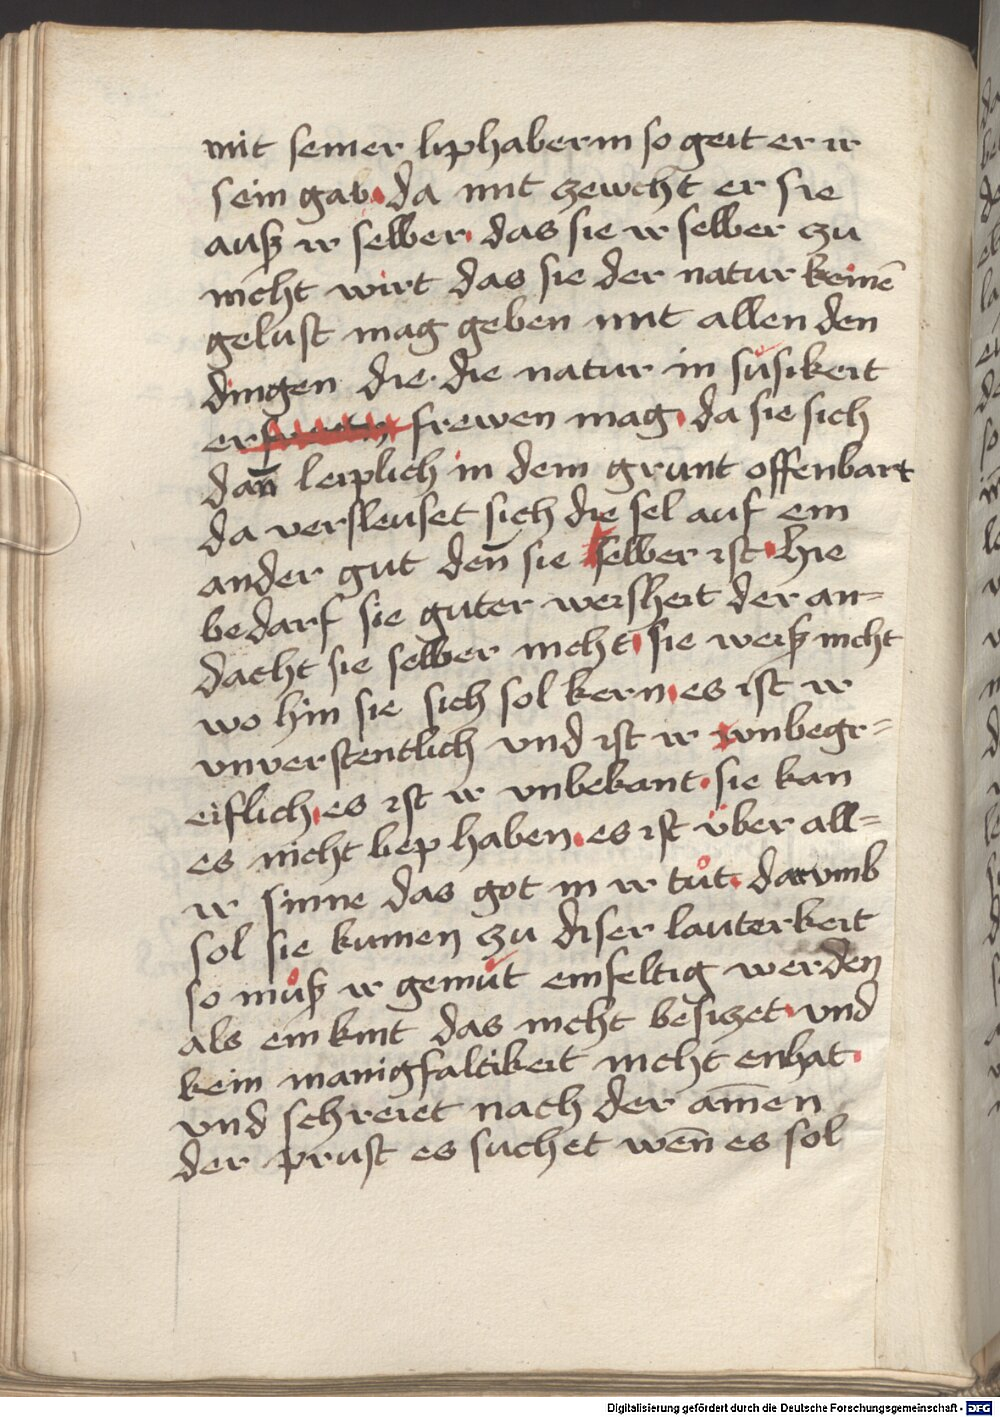 mit seiner liphaberin so geit er ir
sein gab · da mit zewcht er sie
auß ir selber · das sie ir selber zu
nicht wirt das sie der natur keinē
gelust mag geben mit allen den
dingen die · die natur in süsikeit
er frewen mag · da sie sich
dan̄ leiplich in dem grunt offenbart
da versleuset sich die sel auf ein
ander gut den̄ sie selber ist · hie
bedarf sie guter weisheit der an=
dacht sie selber nicht · sie weiß nicht
wo hin sie sich sol kern · es ist ir
unverstentlich vnd ist ir vnbegr=
eiflich · es ist ir vnbekant · sie kan
es nicht bey haben · es ist über all=
ir sinne das got in ir tůt · darvmb
sol sie kumen zu diser lauterkeit
so můß ir gemůt einfeltig werden
als ein kint das nicht besiczet · vnd
kein manigfaltikeit nicht enhat ·
vnd schreiet nach der am̄en
der prust es suchet wen̄ es sol
Digitalisierung gefördert durch die Deutsche Forschungsgemeinschaft - DFG